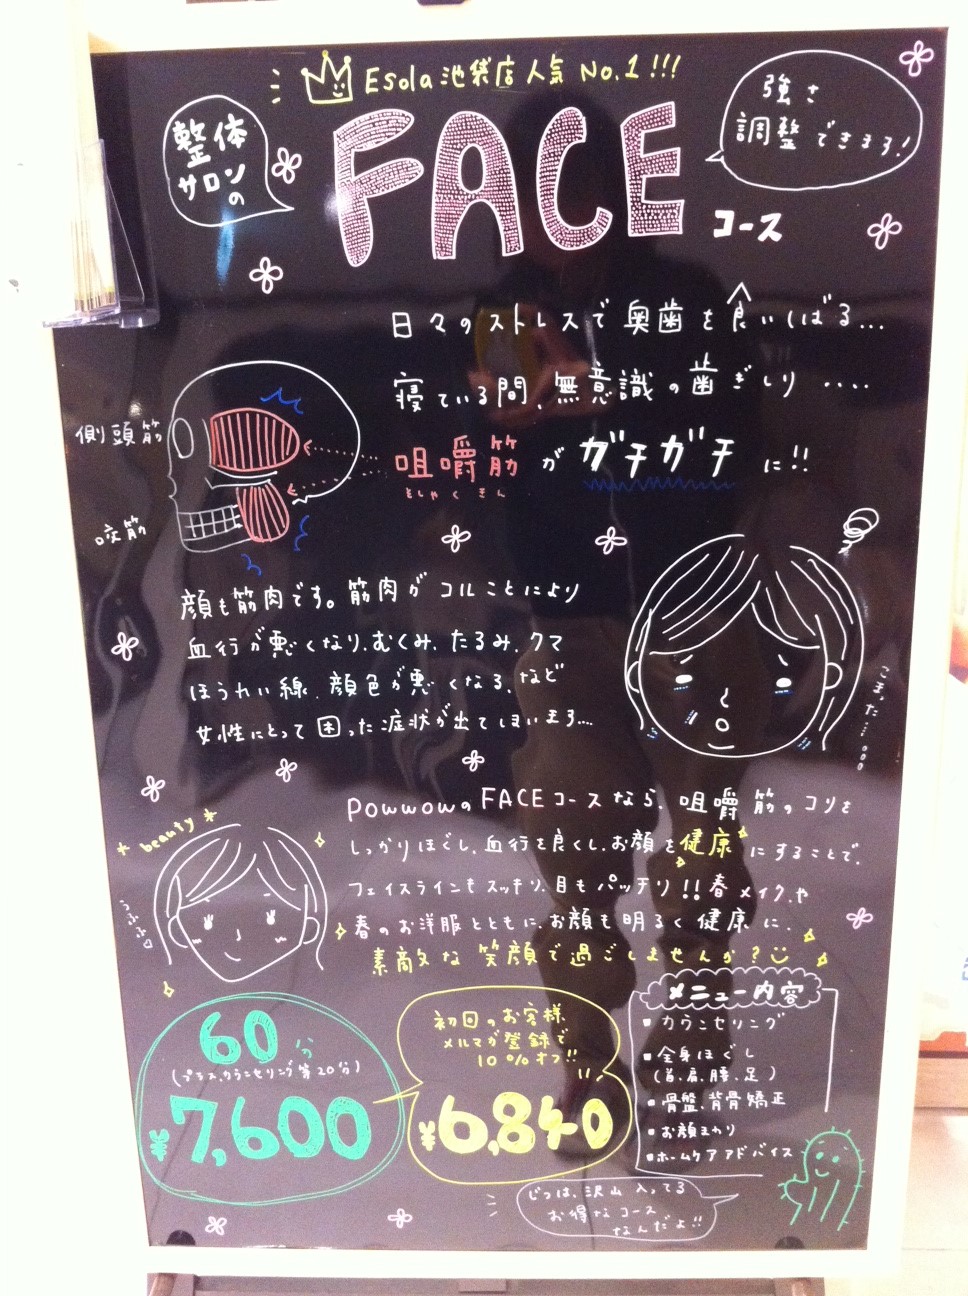 Esola池袋店人気 No.1!!!
整体
サロン
の
FACE
コース
強さ
調整できます!
日々のストレスで奥歯を食いしばる...
寝ている間、無意識の歯ぎしり ....
側頭筋
咀嚼筋 が ガチガチ に!!
そしゃくきん
咬筋
顔も筋肉です。筋肉がコルことにより
血行が悪くなり、むくみ、たるみ、クマ
ほうれい線、顔色が悪くなる、など
女性にとって困った症状が出てしまいます....
こまった...
beauty
うふふ
powwowのFACEコースなら、咀嚼筋のコリを
しっかりほぐし、血行を良くし、お顔を健康にすることで、
フェイスラインもスッキリ、目もパッチリ!!春メイクや
春のお洋服とともに、お顔も明るく健康に、
素敵な笑顔で過ごしませんか?
60分
(プラス、カウンセリング等20分)
¥7,600
初回のお客様、
メルマガ登録で
10%オフ!!
¥6,840
メニュー内容
▪カウンセリング
▪全身ほぐし
(首、肩、腰、足)
▪骨盤、背骨矯正
▪お顔まわり
▪ホームケアアドバイス
じつは、沢山入ってる
お得なコース
なんだよ!!